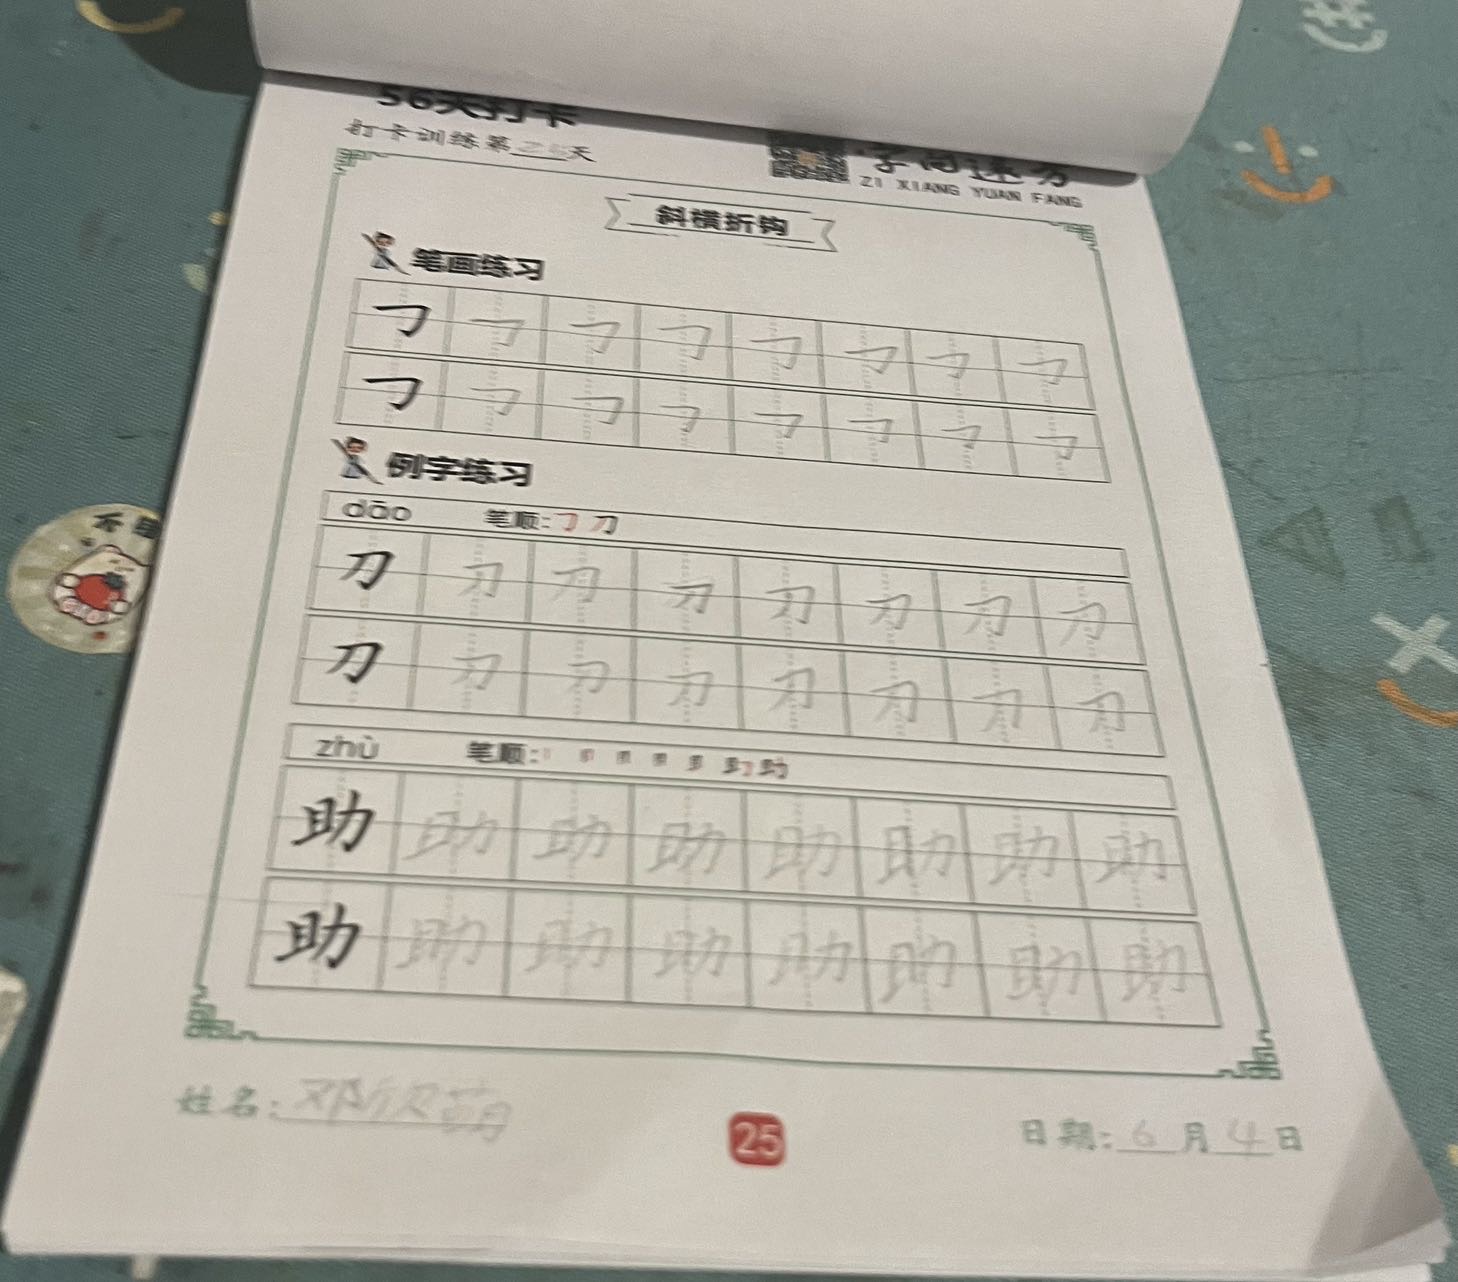 56天打卡
打卡训练第25天
ZI XIANG YUAN FANG
斜横折钩
笔画练习
㇆ ㇆ ㇆ ㇆ ㇆ ㇆ ㇆ ㇆
㇆ ㇆ ㇆ ㇆ ㇆ ㇆ ㇆ ㇆
例字练习
dāo 笔顺:㇆ 刀
刀 刀 刀 刀 刀 刀 刀 刀
刀 刀 刀 刀 刀 刀 刀 刀
zhù 笔顺: 助
助 助 助 助 助 助 助 助
助 助 助 助 助 助 助 助
姓名:
25
日期:6月4日